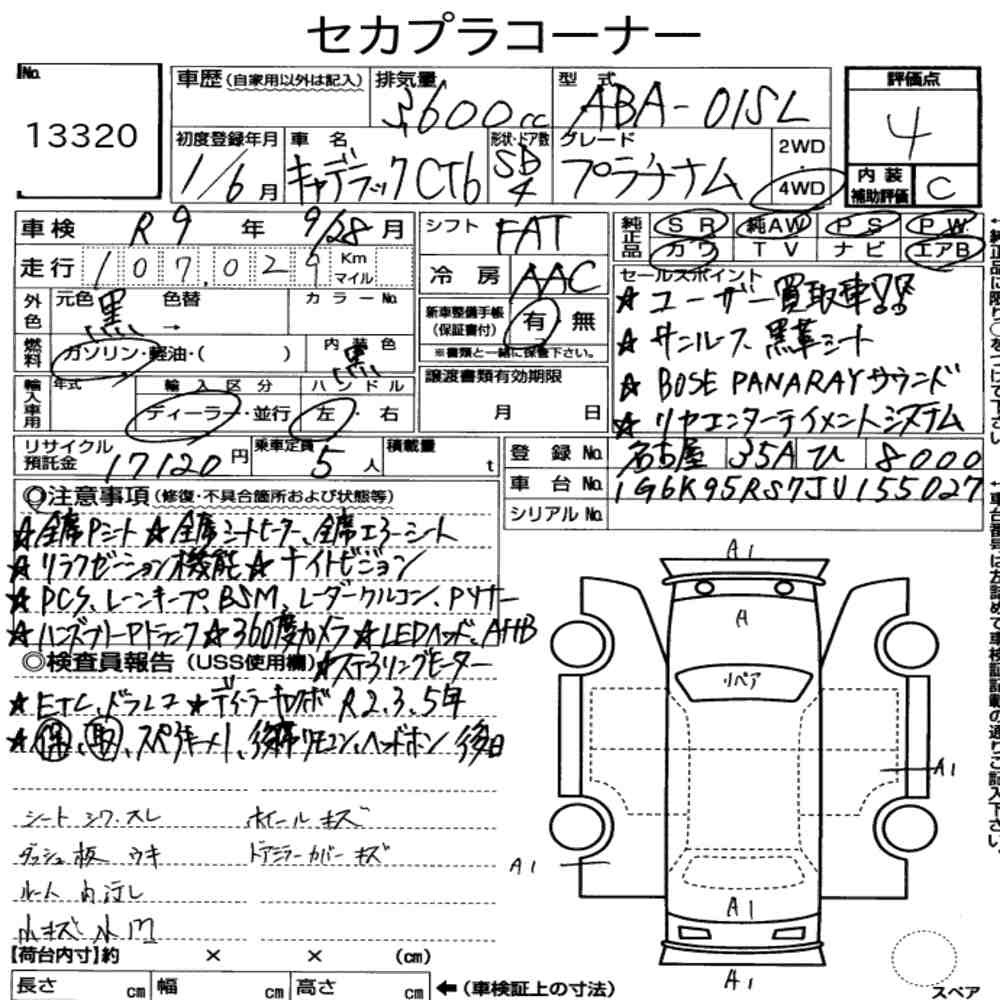 セカプラコーナー
No. 13320
車歴(自家用以外は記入) 排気量 3,600cc 型式 ABA-01SL
初度登録年月 1/6月 車名 キャデラックCT6 形状・ドア数 SD 4 グレード プラチナム 2WD・4WD
評価点 4
内装補助評価 C
車検 R9年 9/28月
走行 107,029 Km マイル
外色 元色 黒 色替 → カラーNo.
燃料 ガソリン・軽油・( ) 内装色 黒
輸入車用 年式 輸入区分 ディーラー・並行 ハンドル 左・右
シフト FAT
冷房 AAC
新車整備手帳(保証書付) 有・無
※書類と一緒に保管下さい。
譲渡書類有効期限 月 日
純正品 SR 純AW PS PW
カワ TV ナビ エアB
セールスポイント
★ユーザー買取車!!
★サンルーフ 黒革シート
★BOSE PANARAYサウンド
★リヤエンターテイメントシステム
リサイクル預託金 17120円 乗車定員 5人 積載量 t
登録No. 名古屋 35A ひ 8000
車台No. 1G6K95RS7JU155027
シリアルNo.
◎注意事項(修復・不具合箇所および状態等)
★全席Pシート ★全席シートヒーター、全席エアーシート
★リラクゼーション機能 ★ナイトビジョン
★PCS、レーンキープ、BSM、レーダークルコン、Pソナー
★ハンズフリーPトランク ★360度カメラ ★LEDヘッド、AHB
◎検査員報告(USS使用欄) ★ステアリングヒーター
★ETC、ドラレコ ★ディーラー R2.3.5年
★保、取、スペアキー1、後席リモコン、ヘッドホン後日
シート シワ、スレ ホイール キズ
ダッシュ板 ウキ ドアミラーカバー キズ
ルーム内汚レ
小キズ 小凹
【荷台内寸】約 × × (cm)
長さ cm 幅 cm 高さ cm ←(車検証上の寸法)
A1
A
リペア
A1
A1
A1
A1
スペア
↑純正品に限り○をつけて下さい
↑車台番号は左詰めで車検証記載の通りご記入下さい。